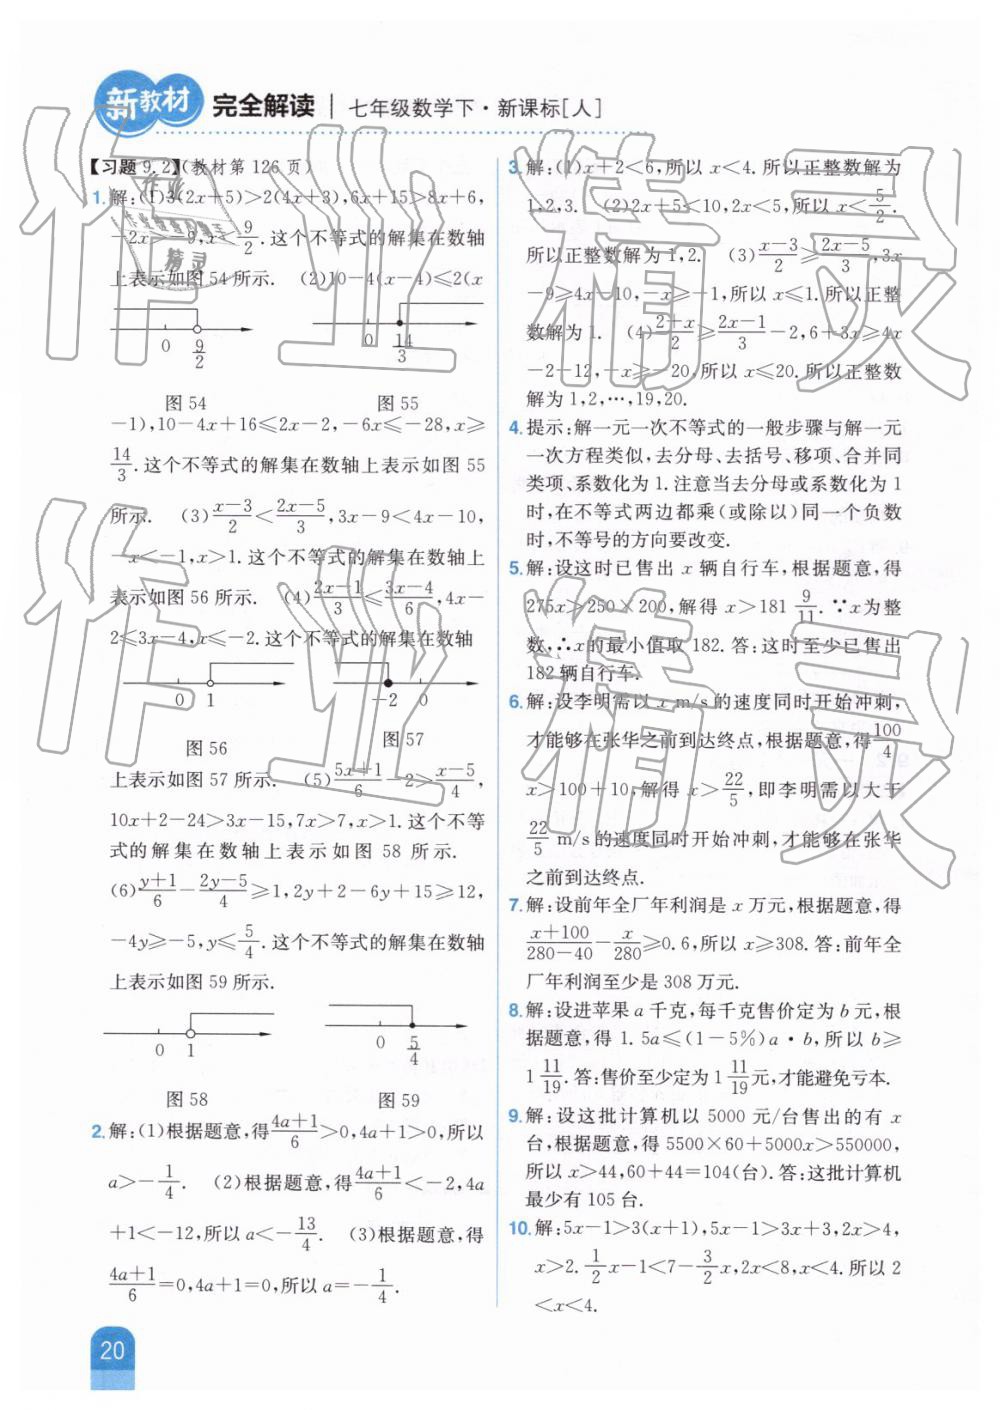 新教材 完全解读 | 七年级数学下·新课标[人]
【习题9.2】(教材第126页)
1.解:(1)3(2x+5)>2(4x+3),6x+15>8x+6,
-2x>-9,x<9/2.这个不等式的解集在数轴
上表示如图54所示. (2)10-4(x-4)≤2(x
0 9/2
0 14/3
图54 图55
-1),10-4x+16≤2x-2,-6x≤-28,x≥
14/3.这个不等式的解集在数轴上表示如图55
所示. (3)(x-3)/2<(2x-5)/3,3x-9<4x-10,
-x<-1,x>1.这个不等式的解集在数轴上
表示如图56所示. (4)(2x-1)/3≤(3x-4)/6,4x-
2≤3x-4,x≤-2.这个不等式的解集在数轴
0 1
-2 0
图56 图57
上表示如图57所示. (5)(5x+1)/6-2>(x-5)/4,
10x+2-24>3x-15,7x>7,x>1.这个不等
式的解集在数轴上表示如图58所示.
(6)(y+1)/6-(2y-5)/4≥1,2y+2-6y+15≥12,
-4y≥-5,y≤5/4.这个不等式的解集在数轴
上表示如图59所示.
0 1
0 5/4
图58 图59
2.解:(1)根据题意,得(4a+1)/6>0,4a+1>0,所以
a>-1/4. (2)根据题意,得(4a+1)/6<-2,4a
+1<-12,所以a<-13/4. (3)根据题意,得
(4a+1)/6=0,4a+1=0,所以a=-1/4.
3.解:(1)x+2<6,所以x<4.所以正整数解为
1,2,3. (2)2x+5≤10,2x<5,所以x<5/2.
所以正整数解为1,2. (3)(x-3)/2≥(2x-5)/3,3x
-9≥4x-10,-x≥-1,所以x≤1.所以正整
数解为1. (4)(2+x)/2≥(2x-1)/3-2,6+3x≥4x
-2-12,-x≥-20,所以x≤20.所以正整数
解为1,2,…,19,20.
4.提示:解一元一次不等式的一般步骤与解一元
一次方程类似,去分母、去括号、移项、合并同
类项、系数化为1.注意当去分母或系数化为1
时,在不等式两边都乘(或除以)同一个负数
时,不等号的方向要改变.
5.解:设这时已售出x辆自行车,根据题意,得
275x>250×200,解得x>181 9/11.∵x为整
数,∴x的最小值取182.答:这时至少已售出
182辆自行车.
6.解:设李明需以x m/s的速度同时开始冲刺,
才能够在张华之前到达终点,根据题意,得100/4
x>100+10,解得x>22/5,即李明需以大于
22/5 m/s的速度同时开始冲刺,才能够在张华
之前到达终点.
7.解:设前年全厂年利润是x万元,根据题意,得
(x+100)/(280-40)-x/280≥0.6,所以x≥308.答:前年全
厂年利润至少是308万元.
8.解:设进苹果a千克,每千克售价定为b元,根
据题意,得1.5a≤(1-5%)a·b,所以b≥
1 11/19.答:售价至少定为1 11/19元,才能避免亏本.
9.解:设这批计算机以5000元/台售出的有x
台,根据题意,得5500×60+5000x>550000,
所以x>44,60+44=104(台).答:这批计算机
最少有105台.
10.解:5x-1>3(x+1),5x-1>3x+3,2x>4,
x>2.1/2x-1<7-3/2x,2x<8,x<4.所以2
<x<4.
20
作业精灵
作业精灵